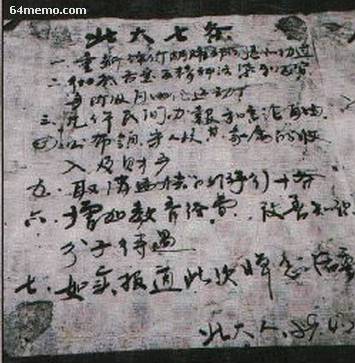 64memo.com
北大七条
一、重新评价胡耀邦的是非功过
二、
三、允许民间办报和言论自由
四、公布领导人及其家属的收
入及财产
五、取消北京的游行十条
六、增加教育经费，改善知识
分子待遇
七、如实报道此次悼念活动
北大人